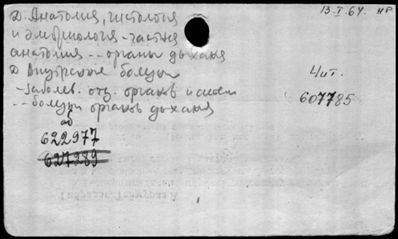 13.I.64. НР
D. Анатомия, гистология
и эмбриология - частна
анатомия -- органи дыханя
D Внутренние болезни
- заболев. отд. органов и систем
-- болезни органов дыханя
4 ит.
607785
ад
622977
627289